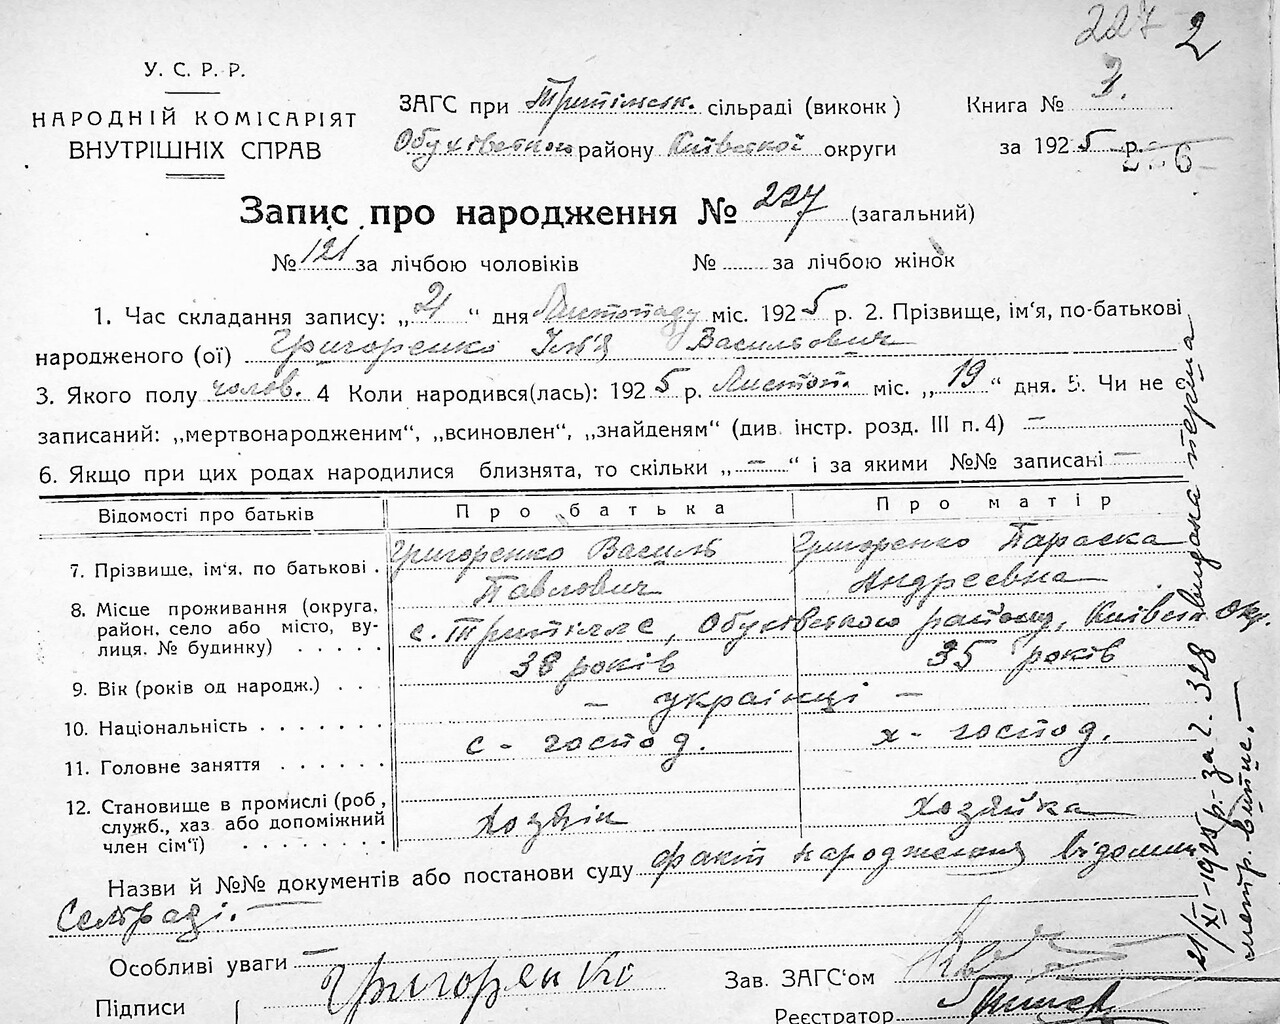 227 2
У. С. Р. Р.
НАРОДНІЙ КОМІСАРІЯТ
ВНУТРІШНІХ СПРАВ
ЗАГС при Трипільськ. сільраді (виконк)
Обухівського району Київської округи
Книга № 3.
за 1925 р.
226
Запис про народження № 227 (загальний)
№ 121 за лічбою чоловіків № за лічбою жінок
1. Час складання запису: „21“ дня Листопаду міс. 1925 р. 2. Прізвище, ім‘я, по-батькові
народженого (ої) Григоренко Ілья Васильович
3. Якого полу чолов. 4 Коли народився(лась): 1925 р. Листоп. міс. „19“ дня. 5. Чи не є
записаний: „мертвонародженим“, „всиновлен“, „знайденям“ (див. інстр. розд. III п. 4) —
6. Якщо при цих родах народилися близнята, то скільки „—“ і за якими №№ записані —
Відомості про батьків Про батька Про матір
7. Прізвище, ім‘я, по батькові . Григоренко Василь Павлович Григоренко Параска Андреєвна
8. Місце проживання (округа, район, село або місто, ву-лиця. № будинку) . . . . . с. Трипіллє, Обухівського району, Київськ. Окр.
9. Вік (років од народж.) . . . 38 років 35 років
10. Національність . . . . . . . — українці —
11. Головне заняття . . . . . . с - господ. х - господ.
12. Становище в промислі (роб, служб., хаз або допоміжний член сім‘ї) . . . . . . . . Хозяїн Хозяйка
Назви й №№ документів або постанови суду факт народження відомий
Сельраді. —
Особливі уваги —
Підписи Григоренко
Зав. ЗАГС‘ом
Реєстратор
21/XI-1925 р. за ч. 328 видана перша
метр. випис. —